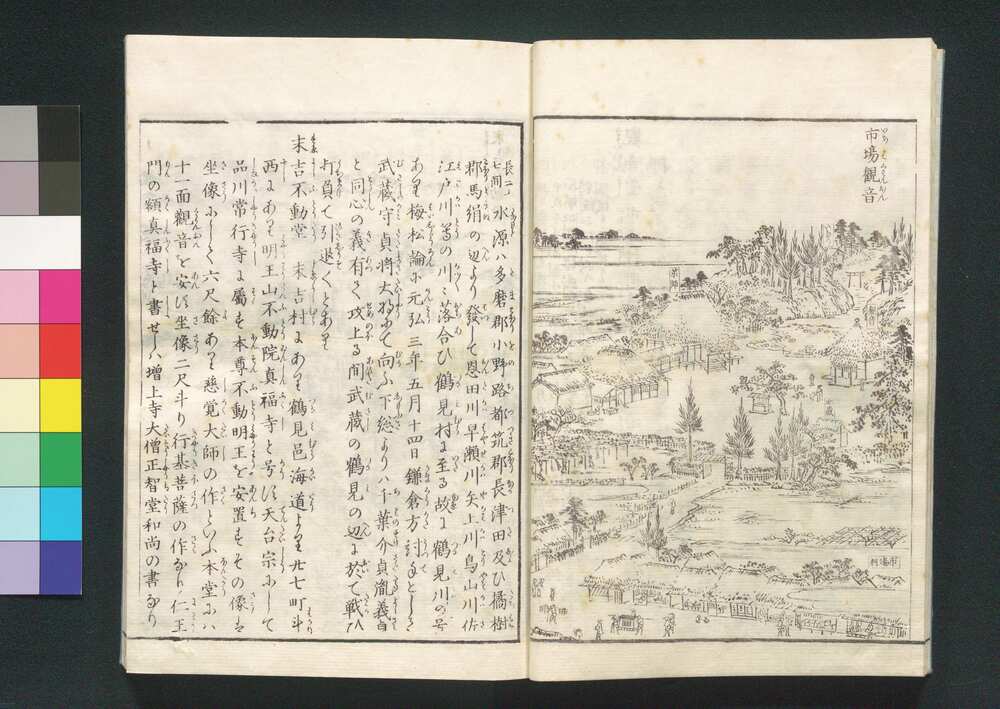 市場観音
市場村
長二十
七間
水源ハ多磨郡小野路都筑郡長津田及ひ橘樹
郡馬絹の辺より發して恩田川早瀬川矢上川鳥山川佐
江戸川等の川々落合ひ鶴見村に至る故に鶴見川の号
あり梅松論に元弘三年五月十四日鎌倉方討手として
武藏守貞将大将にて向ふ下総よりハ千葉介貞胤義貞
と同心の義有て攻上る間武藏の鶴見の辺に於て戦ひ
打負て引退くとあり
末吉不動堂 末吉村にあり鶴見邑海道より廿七町斗
西にあり明王山不動院真福寺と号す天台宗にして
品川常行寺に屬す本尊不動明王を安置すその像は
坐像にして六尺餘あり慈覚大師の作といふ本堂にハ
十一面觀音を安す坐像二尺斗り行基菩薩の作なり仁王
門の額真福寺と書せしハ増上寺大僧正智堂和尚の書なり